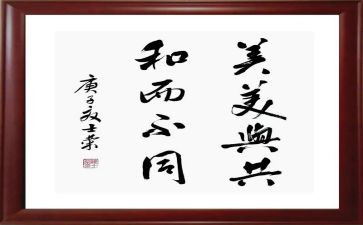 美美與共
和而不同
庚子敖士荣